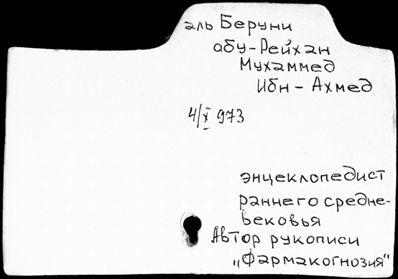 аль Беруни
абу-Рейхан
Мухаммед
Ибн-Ахмед
4/X 973
энцеклопедист
раннего средне-
вековья
Автор рукописи
„Фармакогнозия“